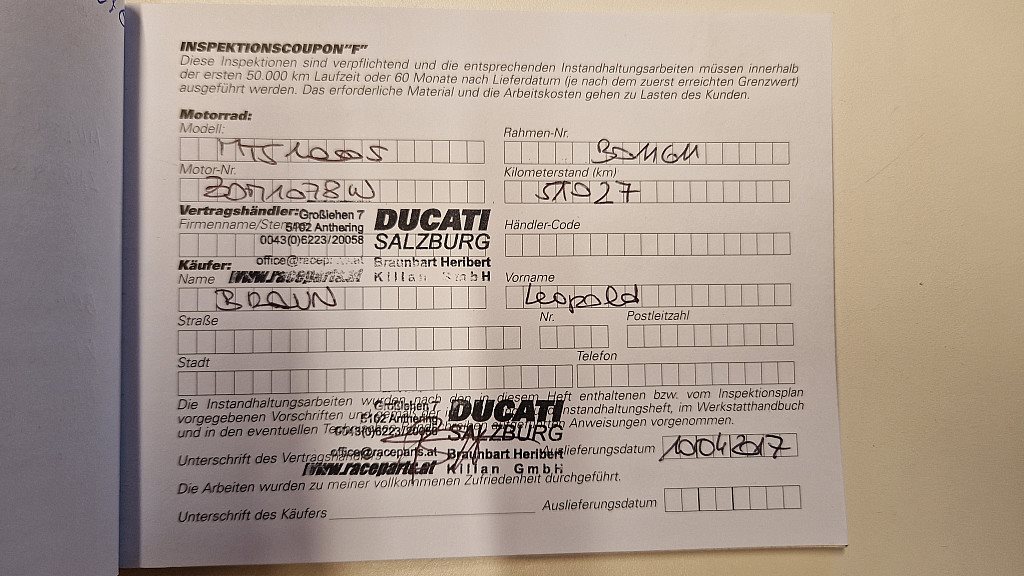 INSPEKTIONSCOUPON"F"
Diese Inspektionen sind verpflichtend und die entsprechenden Instandhaltungsarbeiten müssen innerhalb
der ersten 50.000 km Laufzeit oder 60 Monate nach Lieferdatum (je nach dem zuerst erreichten Grenzwert)
ausgeführt werden. Das erforderliche Material und die Arbeitskosten gehen zu Lasten des Kunden.
Motorrad:
Modell:
Rahmen-Nr.
MTS1000S
Motor-Nr.
Kilometerstand (km)
51027
Vertragshändler:
Firmenname/
Großlehen 7
5102 Anthering
0043(0)6223/20058
office@raceparts.at
www.raceparts.at
DUCATI
SALZBURG
Braunbart Heribert
Kilian GmbH
Händler-Code
Käufer:
Name
Vorname
BRAUN
Leopold
Straße
Nr.
Postleitzahl
Stadt
Telefon
Die Instandhaltungsarbeiten wurden nach den in diesem Heft enthaltenen bzw. vom Inspektionsplan
vorgegebenen Vorschriften und Instandhaltungsheft, im Werkstatthandbuch
und in den eventuellen Anweisungen vorgenommen.
Großlehen 7
5102 Anthering
0043(0)6223/20058
office@raceparts.at
www.raceparts.at
DUCATI
SALZBURG
Braunbart Heribert
Kilian GmbH
Unterschrift des Vertragshändlers
Auslieferungsdatum
10042017
Die Arbeiten wurden zu meiner vollkommenen Zufriedenheit durchgeführt.
Unterschrift des Käufers
Auslieferungsdatum